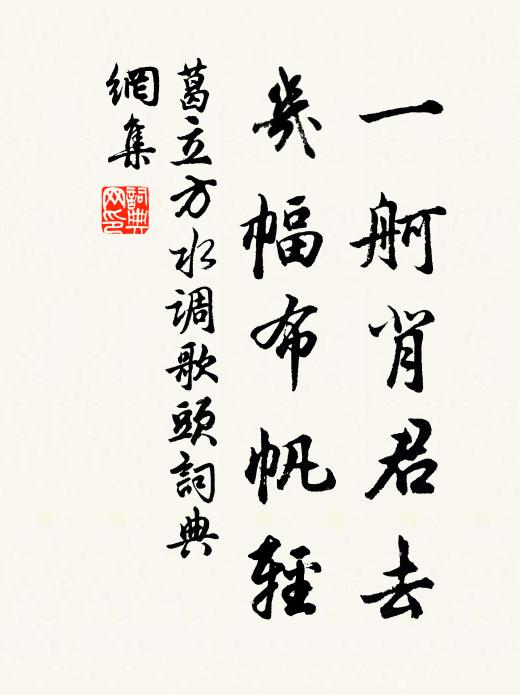 一舸肖君去
幾幅布帆輕
葛立方水调歌頭詞典
網集
詞典
网印